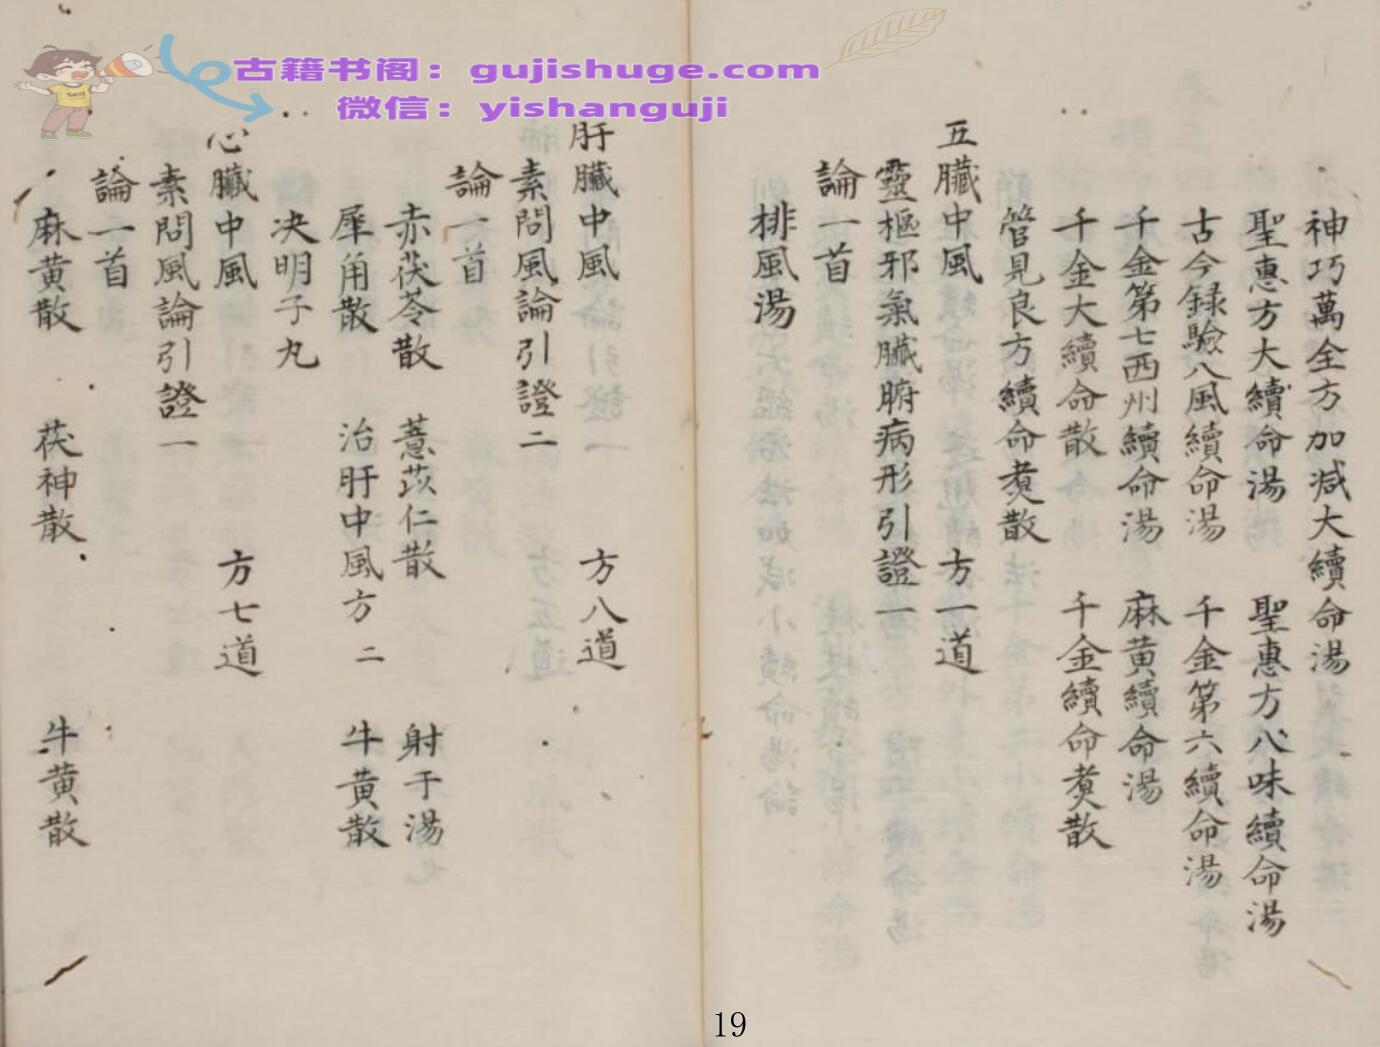 古籍书阁：gujishuge.com
微信：yishanguji
神巧萬全方加減大續命湯
聖惠方大續命湯　聖惠方八味續命湯
古今録驗八風續命湯　千金第六續命湯
千金第七西州續命湯　麻黄續命湯
千金大續命散　千金續命煑散
管見良方續命煑散
五臟中風　方一道
靈樞邪氣臟腑病形引證一
論一首
排風湯
肝臟中風　方八道
素問風論引證二
論一首
赤茯苓散　薏苡仁散　射干湯
犀角散　治肝中風方二　牛黄散
决明子丸
心臟中風　方七道
素問風論引證一
論一首
麻黄散　茯神散　牛黄散
19